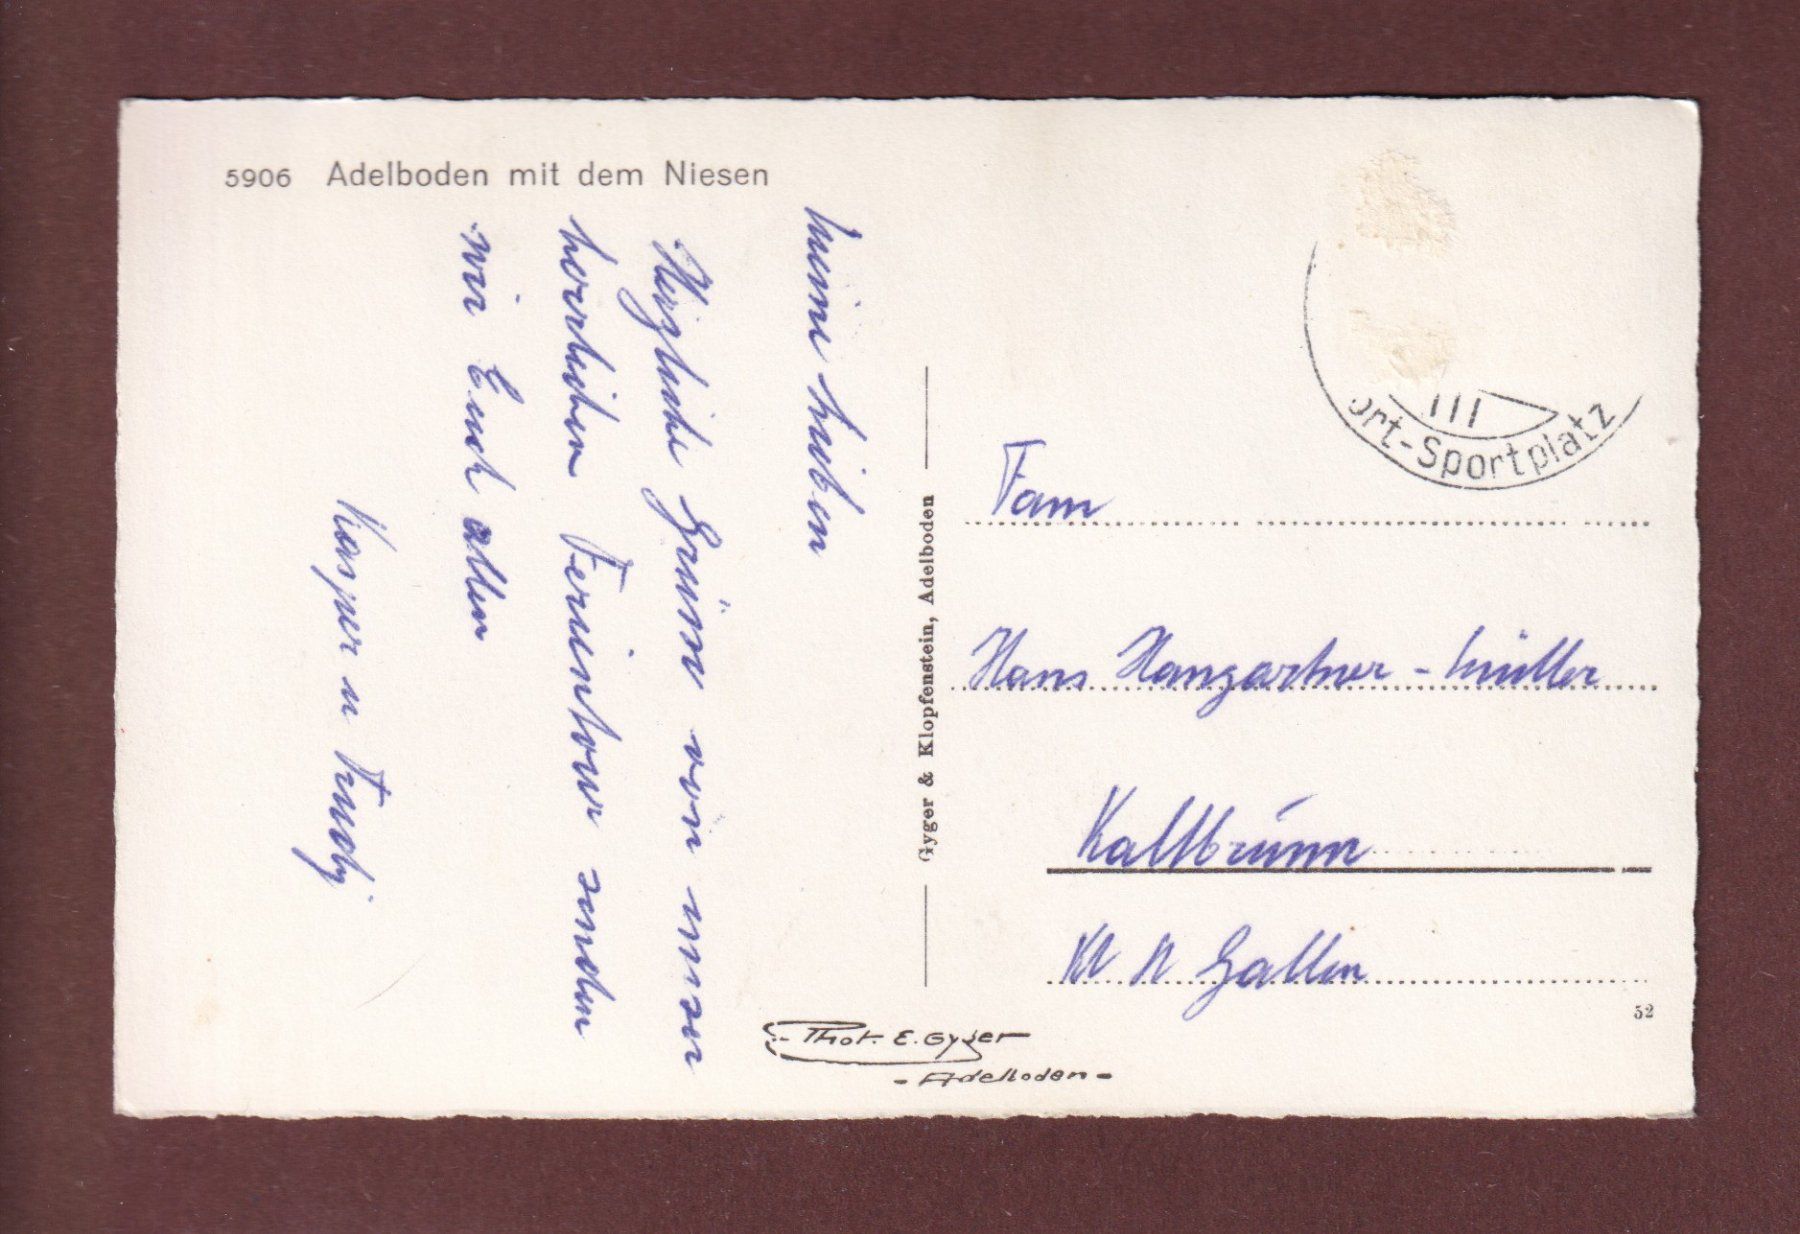 5906 Adelboden mit dem Niesen
Meine Lieben
Herzliche Grüsse von unser
herrlichen Ferientour senden
wir Euch allen
Kasper u Trudy
Gyger & Klopfenstein, Adelboden
ort-Sportplatz
Fam
Hans Hangartner-Müller
Kaltbrunn
Kt St Gallen
52
Phot. E. Gyger
-Adelboden-